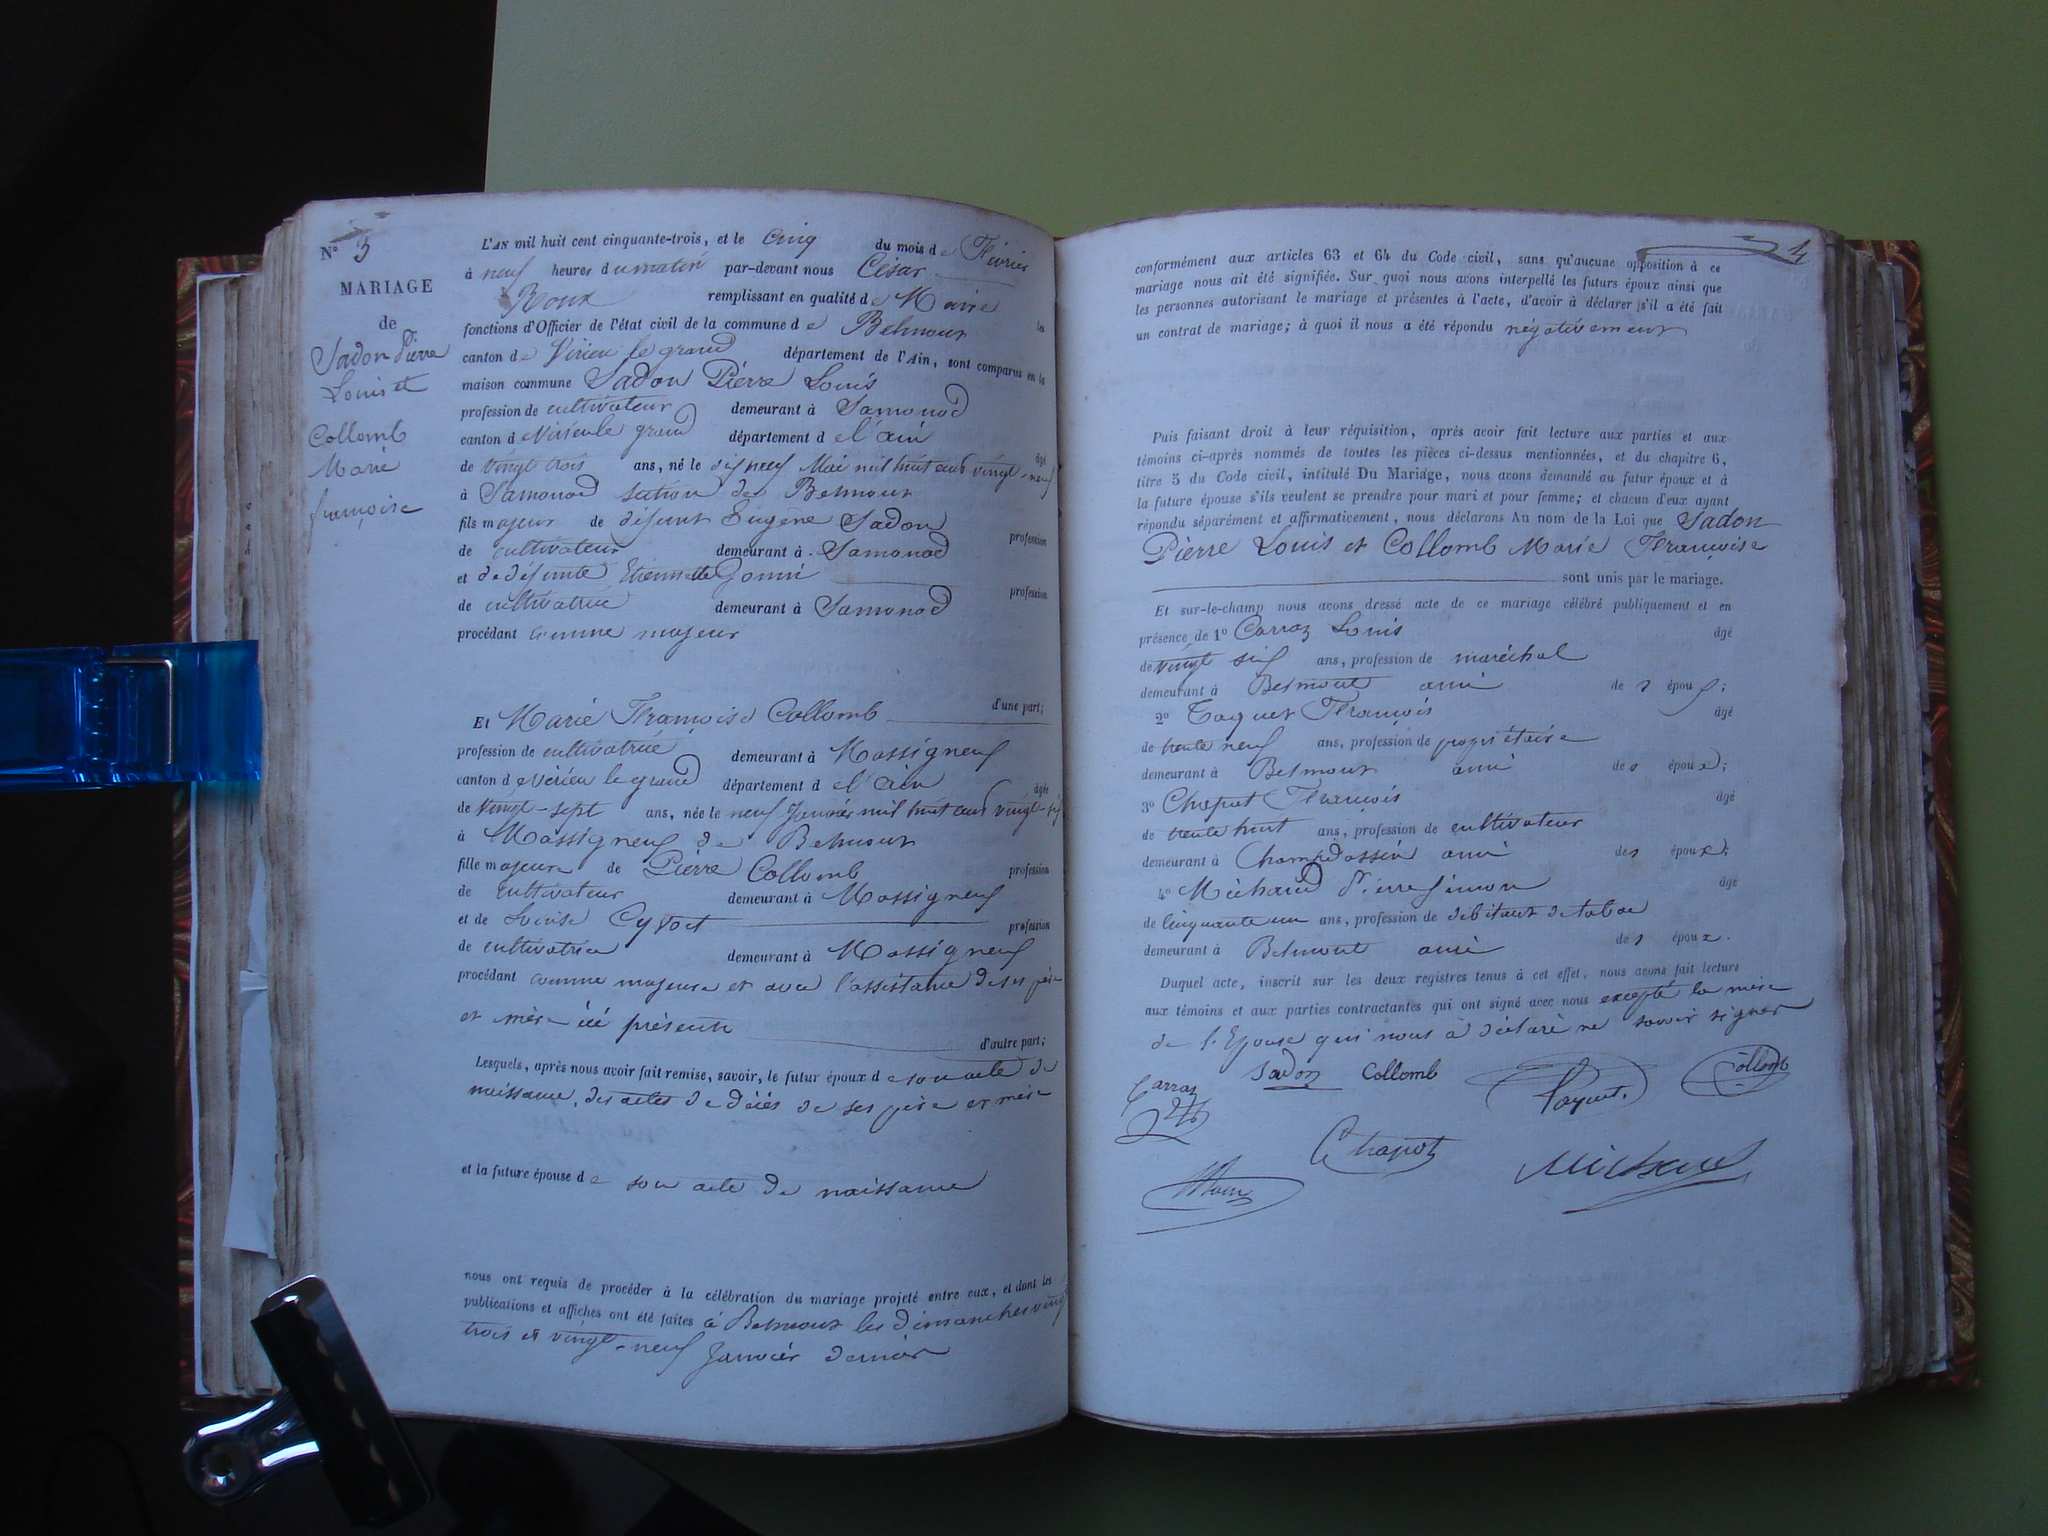 N° 3
MARIAGE
de
Sadon Pierre
Louis et
Collomb
Marie
françoise
L'AN mil huit cent cinquante-trois, et le Cinq du mois de Février
à neuf heures du matin par-devant nous César
Roux remplissant en qualité de Maire les
fonctions d'Officier de l'état civil de la commune de Belmont
canton de Virieu le grand département de l'Ain, sont comparus en la
maison commune Sadon Pierre Louis
profession de cultivateur demeurant à Samonod
canton de Virieu le grand département de l'ain âgé
de vingt trois ans, né le dix neuf Mai mil huit cent vingt-neuf
à Samonod section de Belmont
fils majeur de défunt Eugène Sadon profession
de cultivateur demeurant à Samonod
et de défunte Etiennette profession
de cultivatrice demeurant à Samonod
procédant comme majeur
d'une part;
Et Marie Françoise Collomb
profession de cultivatrice demeurant à Massigneu
canton de Virieu le grand département de l'ain âgée
de vingt-sept ans, née le neuf Janvier mil huit cent vingt-six
à Massigneu de Belmont
fille majeure de Pierre Collomb profession
de cultivateur demeurant à Massigneu
et de Louise Cyvoct profession
de cultivatrice demeurant à Massigneu
procédant comme majeure et avec l'assistance de ses père
et mère ici présents
d'autre part;
Lesquels, après nous avoir fait remise, savoir, le futur époux de son acte de
naissance, des actes de décès de ses père et mère
et la future épouse de son acte de naissance
nous ont requis de procéder à la célébration du mariage projeté entre eux, et dont les
publications et affiches ont été faites à Belmont les dimanches vingt
trois et vingt-neuf Janvier dernier
4
conformément aux articles 63 et 64 du Code civil, sans qu'aucune opposition à ce
mariage nous ait été signifiée. Sur quoi nous avons interpellé les futurs époux ainsi que
les personnes autorisant le mariage et présentes à l'acte, d'avoir à déclarer s'il a été fait
un contrat de mariage; à quoi il nous a été répondu négativement
Puis faisant droit à leur réquisition, après avoir fait lecture aux parties et aux
témoins ci-après nommés de toutes les pièces ci-dessus mentionnées, et du chapitre 6,
titre 5 du Code civil, intitulé Du Mariage, nous avons demandé au futur époux et à
la future épouse s'ils veulent se prendre pour mari et pour femme; et chacun d'eux ayant
répondu séparément et affirmativement, nous déclarons Au nom de la Loi que Sadon
Pierre Louis et Collomb Marie Françoise
sont unis par le mariage.
Et sur-le-champ nous avons dressé acte de ce mariage célébré publiquement et en
présence de 1° Carraz Louis âgé
de vingt six ans, profession de maréchal
demeurant à Belmont ami des époux;
2° Taquet François âgé
de trente neuf ans, profession de propriétaire
demeurant à Belmont ami des époux;
3° Chapot François âgé
de trente huit ans, profession de cultivateur
demeurant à Champdossin ami des époux;
4° Michaud Pierre Simon âgé
de Cinquante un ans, profession de débitant de tabac
demeurant à Belmont ami des époux.
Duquel acte, inscrit sur les deux registres tenus à cet effet, nous avons fait lecture
aux témoins et aux parties contractantes qui ont signé avec nous excepté la mère
de l'Epouse qui nous à déclaré ne savoir signer
Carraz Sadon Collomb Collomb
Chapot Michaud